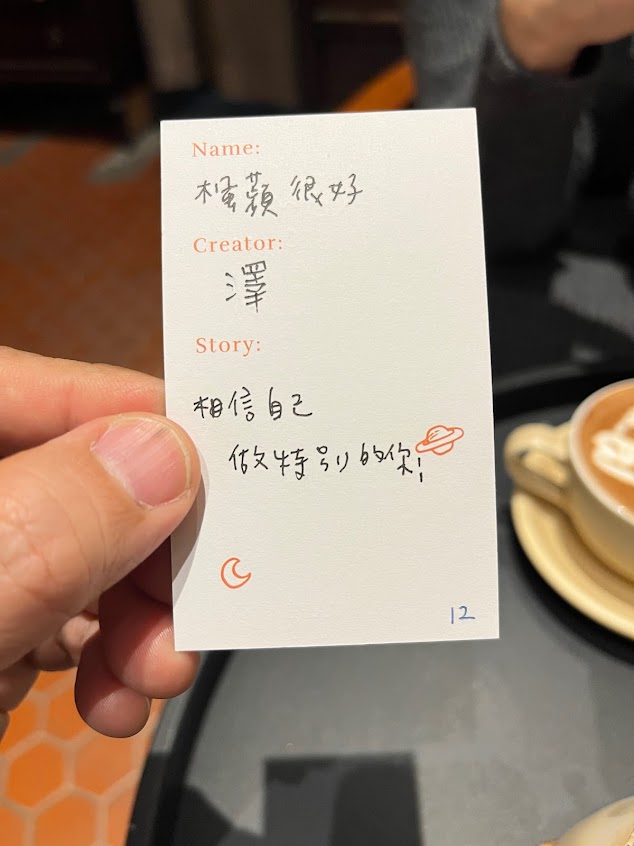 Name:
蘋很好
Creator:
澤
Story:
相信自己
做特別的你!
12